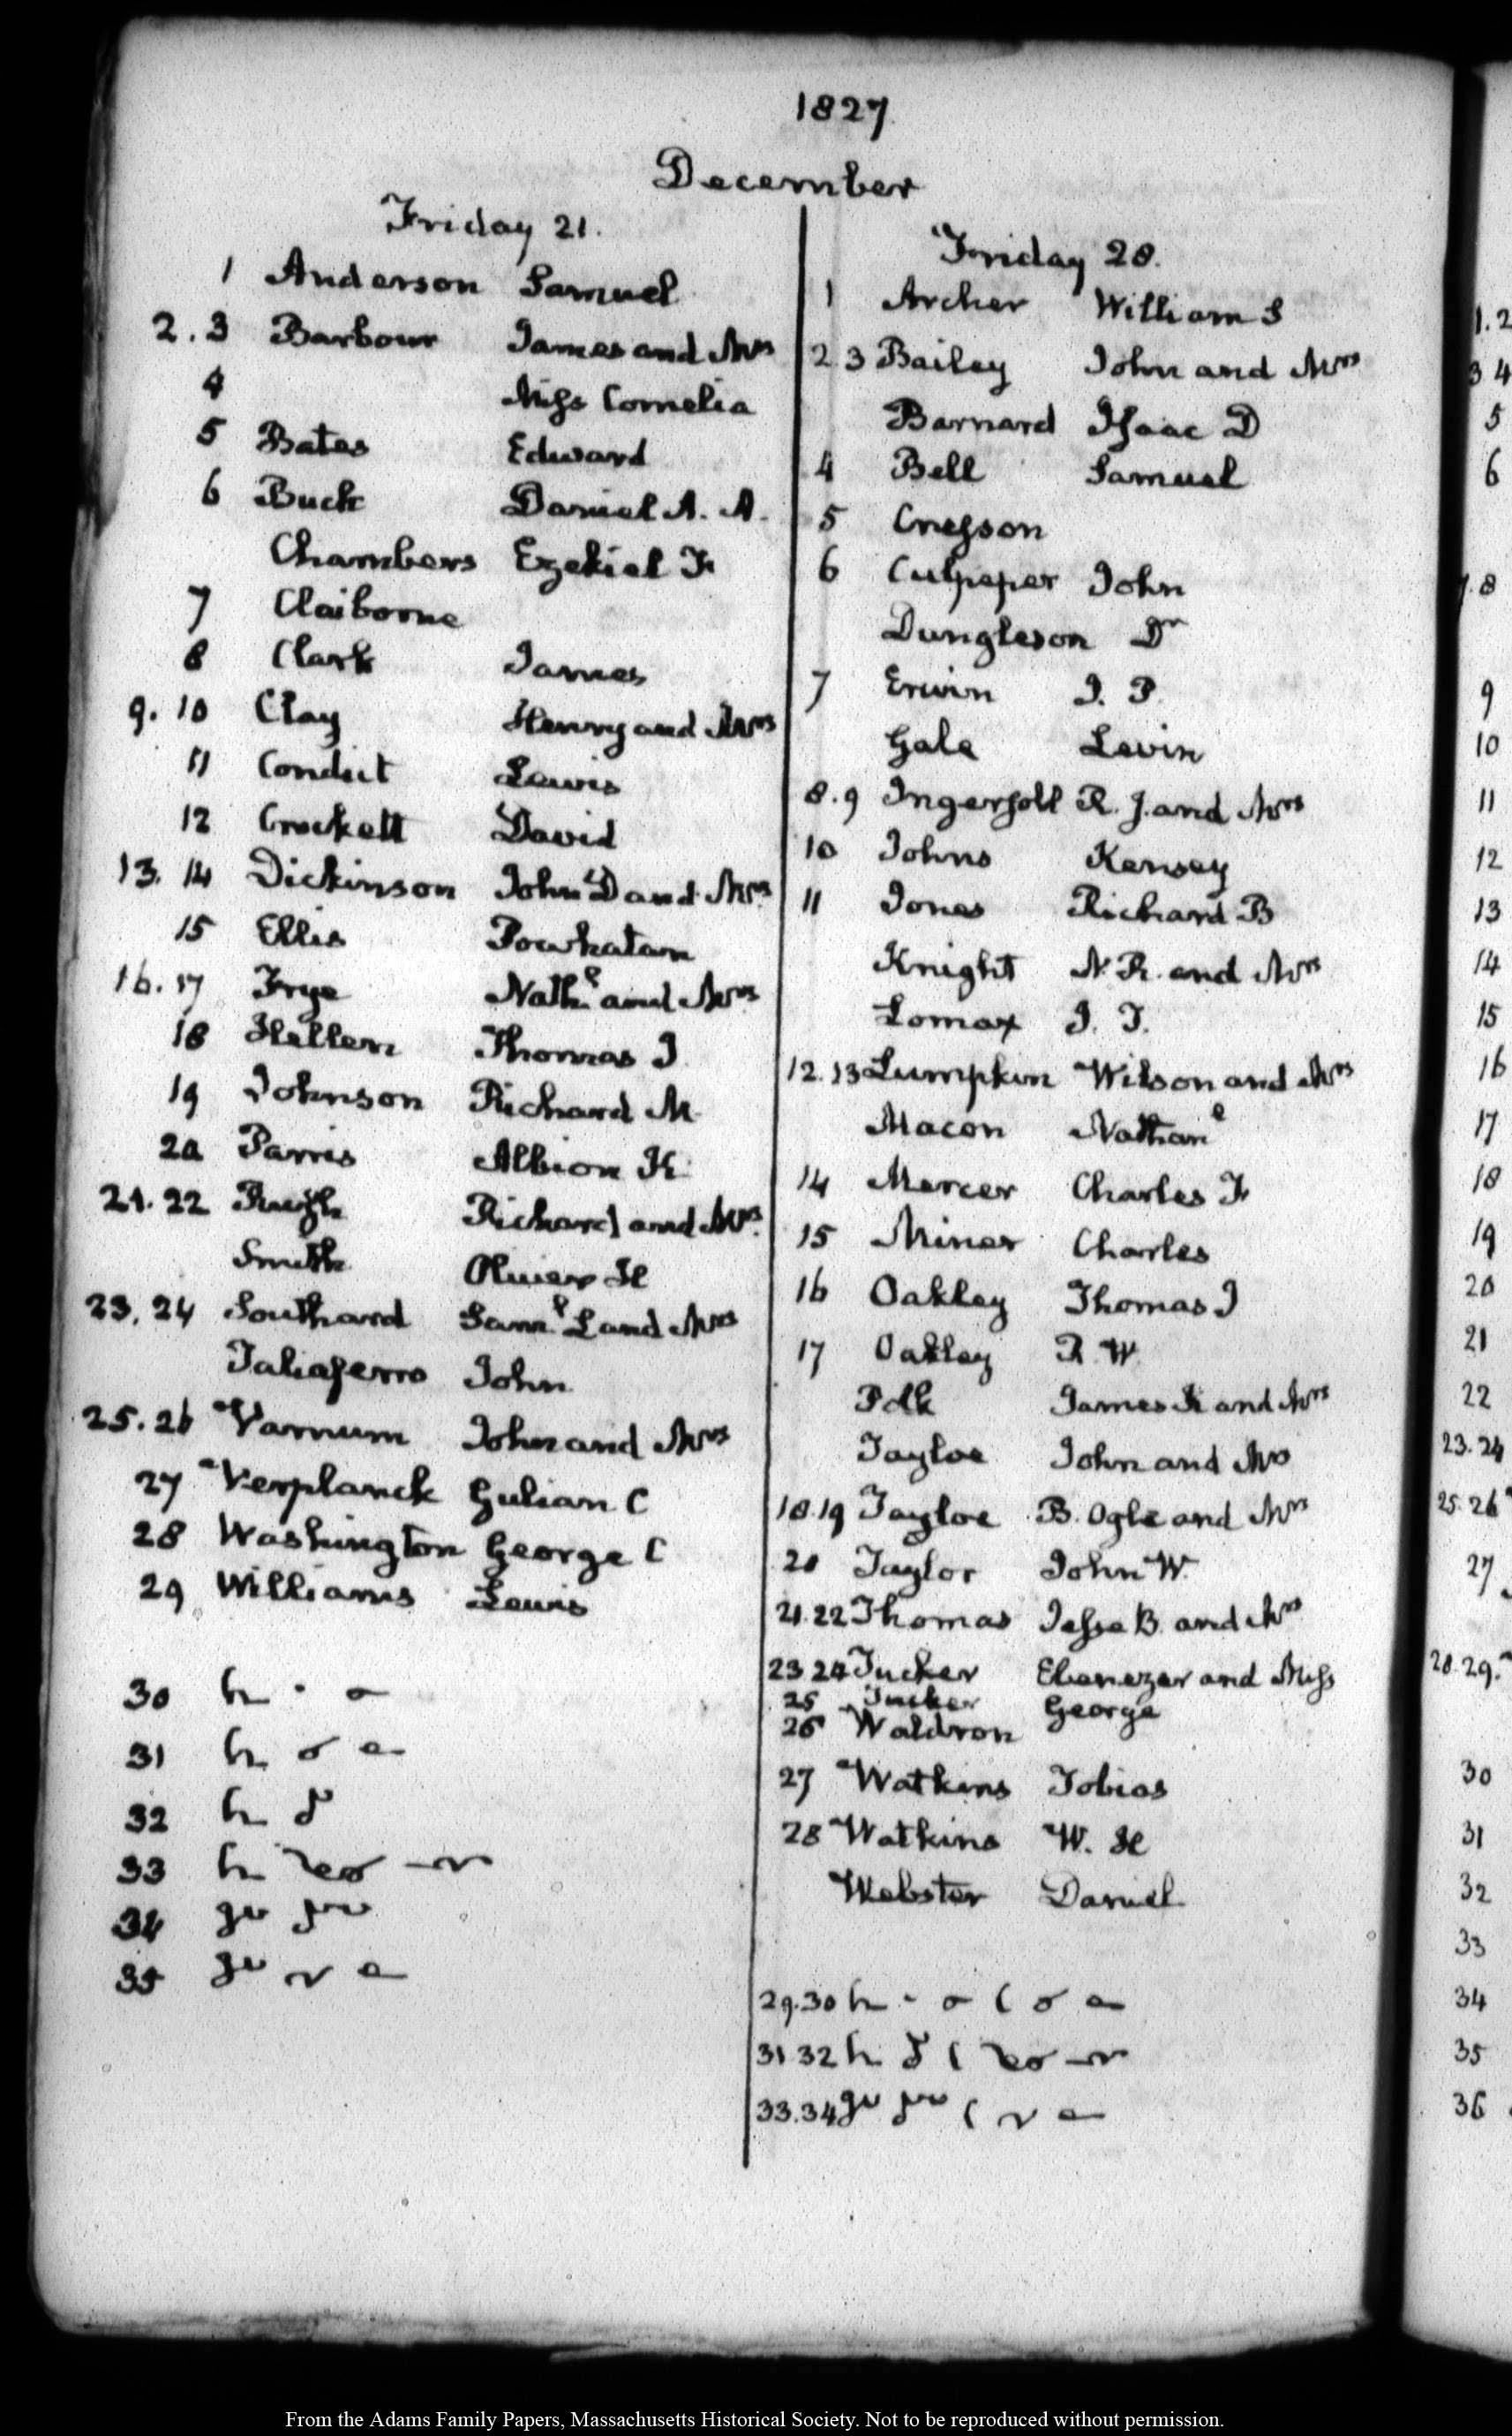 1827
December
Friday 21.
1 Anderson Samuel
2. 3 Barbour James and Mrs
4 Miss Cornelia
5 Bates Edward
6 Buck Daniel A. A.
Chambers Ezekiel F
7 Claiborne
8 Clark James
9. 10 Clay Henry and Mrs
11 Condict Lewis
12 Crockett David
13. 14 Dickinson John D and Mrs
15 Ellis Powhatan
16. 17 Frye Nathl and Mrs
18 Hellen Thomas J
19 Johnson Richard M
20 Parris Albion K
21. 22 Rush Richard and Mrs
Smith Oliver H
23. 24 Southard Saml L and Mrs
Taliaferro John
25. 26 Varnum John and Mrs
27 Verplanck Gulian C
28 Washington George C
29 Williams Lewis
30
31
32
33
34
35
Friday 28.
1 Archer William S
2 3 Bailey John and Mrs
Barnard Isaac D
4 Bell Samuel
5 Cresson
6 Culpeper John
Dungleson Dr
7 Erwin J. P.
Gale Levin
8. 9 Ingersoll R. J. and Mrs
10 Johns Kensey
11 Jones Richard B
Knight N. R. and Mrs
Lomax J. T.
12. 13 Lumpkin Wilson and Mrs
Macon Nathanl
14 Mercer Charles F
15 Miner Charles
16 Oakley Thomas J
17 Oakley R. W.
Polk James K and Mrs
Tayloe John and Mrs
18. 19 Tayloe B. Ogle and Mrs
20 Taylor John W.
21. 22 Thomas Jesse B. and Mrs
23 24 Tucker Ebenezer and Miss
25 Tucker George
26 Waldron
27 Watkins Tobias
28 Watkins W. H
Webster Daniel
29. 30
31 32
33. 34
1. 2
3 4
5
6
7. 8
9
10
11
12
13
14
15
16
17
18
19
20
21
22
23. 24
25. 26
27
28. 29.
30
31
32
33
34
35
36
From the Adams Family Papers, Massachusetts Historical Society. Not to be reproduced without permission.